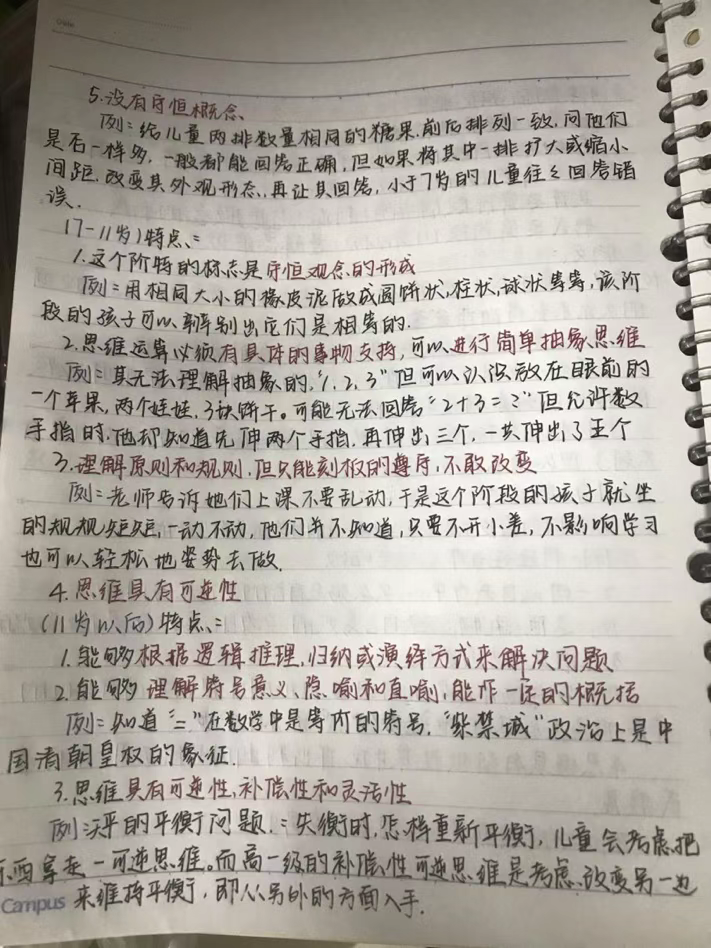 5.没有守恒概念
例:给儿童两排数量相同的糖果,前后排列一致,问他们
是否一样多,一般都能回答正确,但如果将其中一排扩大或缩小
间距,改变其外观形态,再让其回答,小于7岁的儿童往往回答错
误.
(7-11岁)特点:
1.这个阶特的标志是守恒观念的形成
例:用相同大小的橡皮泥做成圆饼状,柱状,球状等等,该阶
段的孩子可以辨别出它们是相等的.
2.思维运算必须有具体的事物支持,可以进行简单抽象思维
例:其无法理解抽象的,"1,2,3"但可以认识放在眼前的
一个苹果,两个娃娃,3块饼干。可能无法回答"2+3=?"但允许数
手指时,他却知道先伸两个手指,再伸出三个,一共伸出了五个
3.理解原则和规则,但只能刻板的遵守,不敢改变
例:老师告诉她们上课不要乱动,于是这个阶段的孩子就坐
的规规矩矩,一动不动,他们并不知道,只要不开小差,不影响学习
也可以轻松地姿势去做.
4.思维具有可逆性
(11岁以后)特点:
1.能够根据逻辑推理,归纳或演绎方式来解决问题
2.能够理解符号意义、隐喻和直喻,能作一定的概括
例:知道"="在数学中是等价的符号,"紫禁城"政治上是中
国清朝皇权的象征.
3.思维具有可逆性,补偿性和灵活性
例:天平的平衡问题.:失衡时,怎样重新平衡,儿童会考虑把
东西拿走—可逆思维。而高一级的补偿性可逆思维是考虑改变另一边
来维持平衡,即从另外的方面入手.
Campus